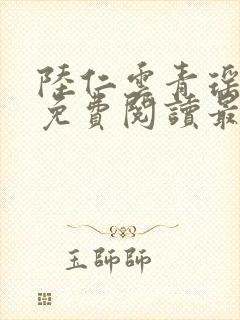 陸仁雲青瑶
免費閱讀最
玉師師